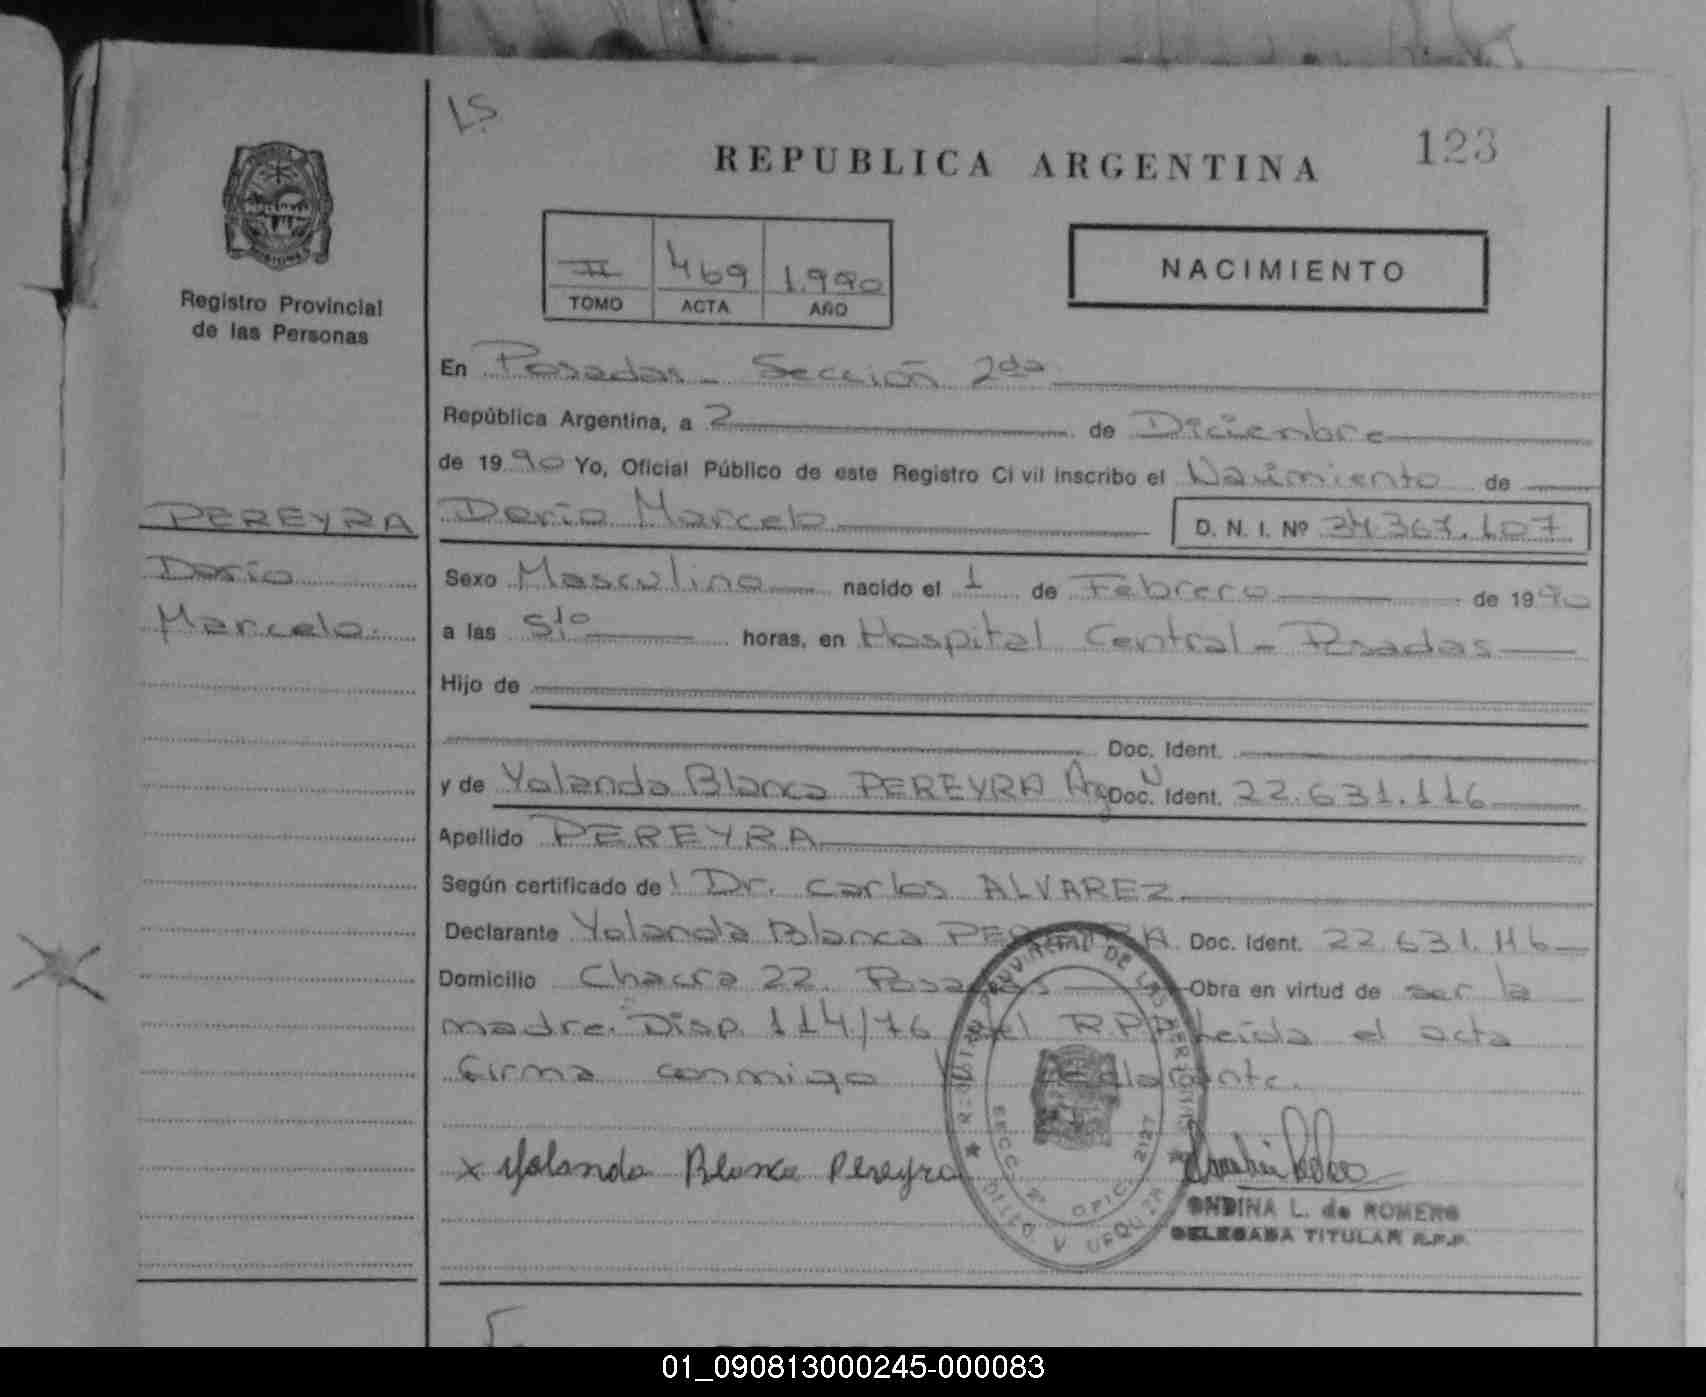 LS
REPUBLICA ARGENTINA
123
Registro Provincial
de las Personas
II 469 1.990
TOMO ACTA AÑO
NACIMIENTO
En Posadas - Sección 2da
República Argentina, a 2 de Diciembre
de 1990 Yo, Oficial Público de este Registro Civil inscribo el Nacimiento de
PEREYRA
Dario
Marcelo.
Dario Marcelo D. N. I. Nº 34.367.107
Sexo Masculino nacido el 1 de Febrero de 1990
a las horas, en Hospital Central - Posadas
Hijo de
Doc. Ident.
y de Yolanda Blanca PEREYRA Arg Doc. Ident. 22.631.116
Apellido PEREYRA
Según certificado de: Dr. Carlos ALVAREZ
Declarante Yolanda Blanca PEREYRA Doc. Ident. 22.631.116
Domicilio Chacra 22. Posadas Obra en virtud de ser la
madre. Disp. 114/76 del R.P.P. Leida el acta
firma conmigo declarante.
x Yolanda Blanca Pereyra
ONDINA L. de ROMERO
DELEGADA TITULAR R.P.P.
REGISTRO PROVINCIAL DE LAS PERSONAS
SECC. 2ª OFIC. 2127
01_090813000245-000083